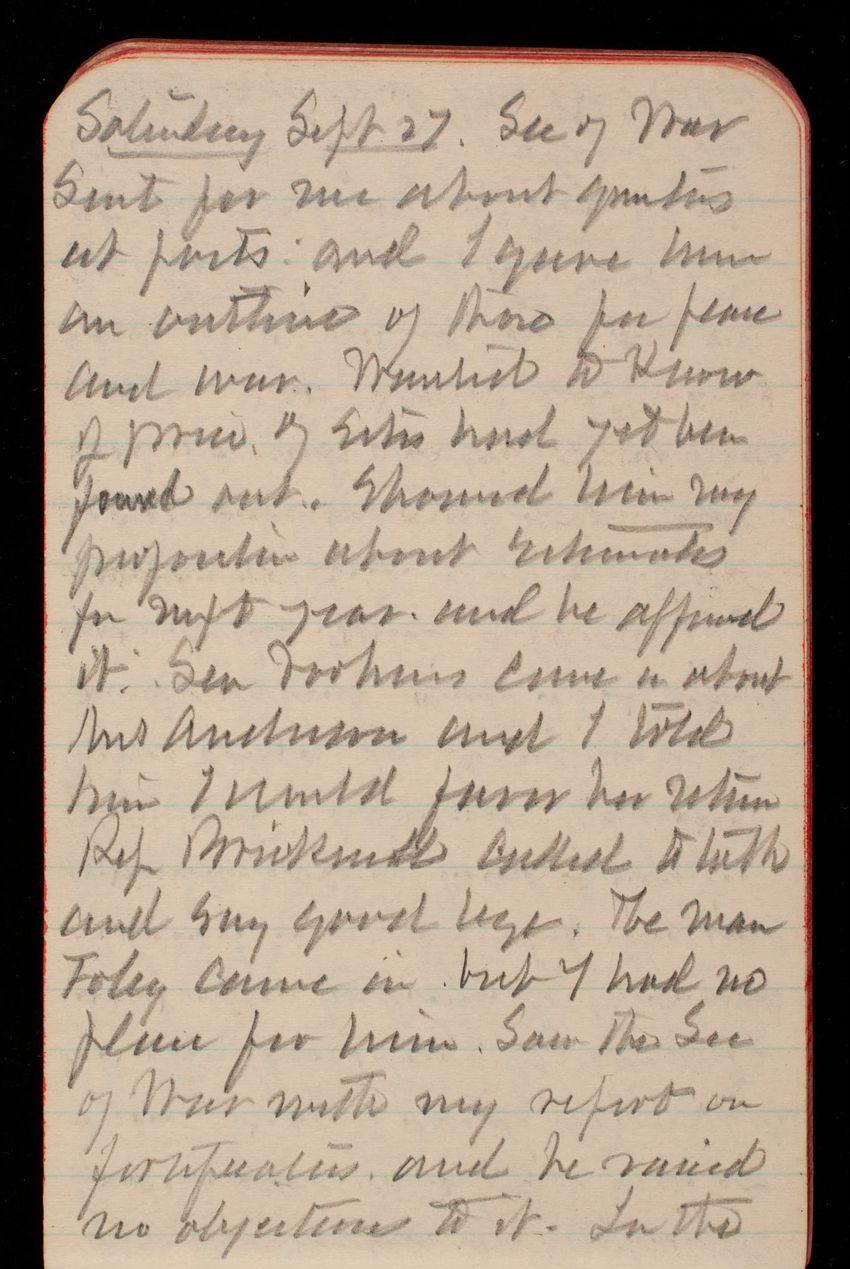 Saturday Sept 27. Sec of War
Sent for me about
at forts: and I gave him
an outline of those for peace
and war. Wanted to Know
if price of Sites had yet been
found out. Showed him my
about Estimates
for next year. and he approved
it. Sen came in about
Mrs Anderson and I told
him I would favor her return
Rep called to talk
and say good bye. The man
Foley came in but I had no
place for him. Saw the Sec
of War with my report on
fortifications. and he raised
no objections to it. In the